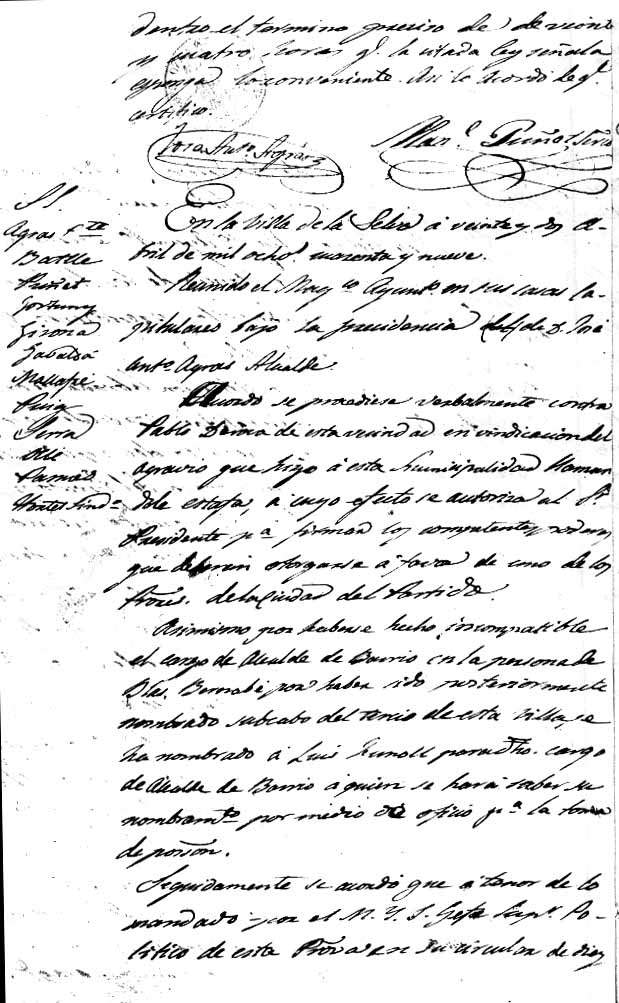 dentro el termino preciso de de veinte
y cuatro horas qe. la citada ley señala
esponga lo conveniente. Asi lo acordó de qe.
certifico.
Jose Anto. Agras
Manl. Puñet Srio
SS.
Agras Pte.
Batlle
Puñet
Fortuny
Girona
Gabaldá
Mallafré
Puig
Serra
Olle
Pamies
Montes Sindo.
En la Villa de la Selva á veinte y dos A-
bril de mil ochos. cuarenta y nueve.
Reunido el Magco. Ayunto. en sus casas Ca-
pitulares bajo la presidencia del de D. José
Anto. Agras Alcalde.
Acordó se procediese verbalmente contra
Pablo de esta vecindad en vindicacion del
agravio que hizo á esta Municipalidad llaman
dole estafa, a cuyo efecto se autoriza al Sr.
Presidente pa. firmar los competentes poderes
que deberan otorgarse á favor de uno de los
Prores. de la Ciudad del Partido.
Asimismo por haberse hecho incompatible
el cargo de Alcalde de Barrio en la persona de
Blas Bernabé por haber sido posteriormente
nombrado subcabo del tercio de esta Villa, se
ha nombrado á Luis Hunoll para dho. cargo
de Alcalde de Barrio á quien se hará saber su
nombramto. por medio de oficio pa. la toma
de poseson.
Seguidamente se acordó que a tenor de lo
mandado por el M. Y. S. Gefe Supr. Po-
litico de esta Prova. en su circular de diez